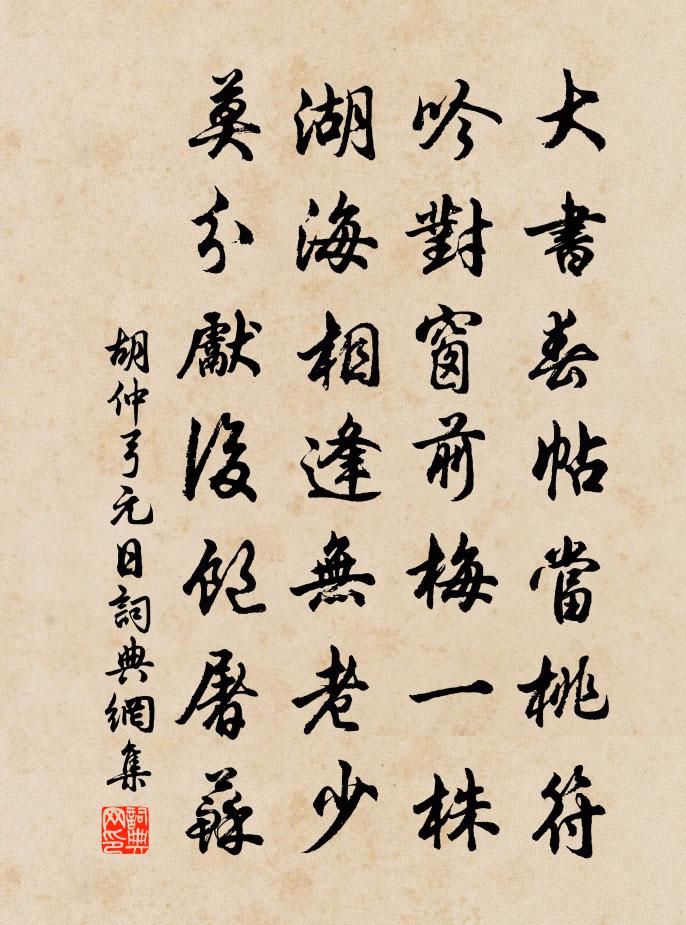 大書春帖當桃符
吟對窗前梅一株
湖海相逢無老少
莫分獻後飽屠蘇
胡仲弓元日詞典網集
詞典网印